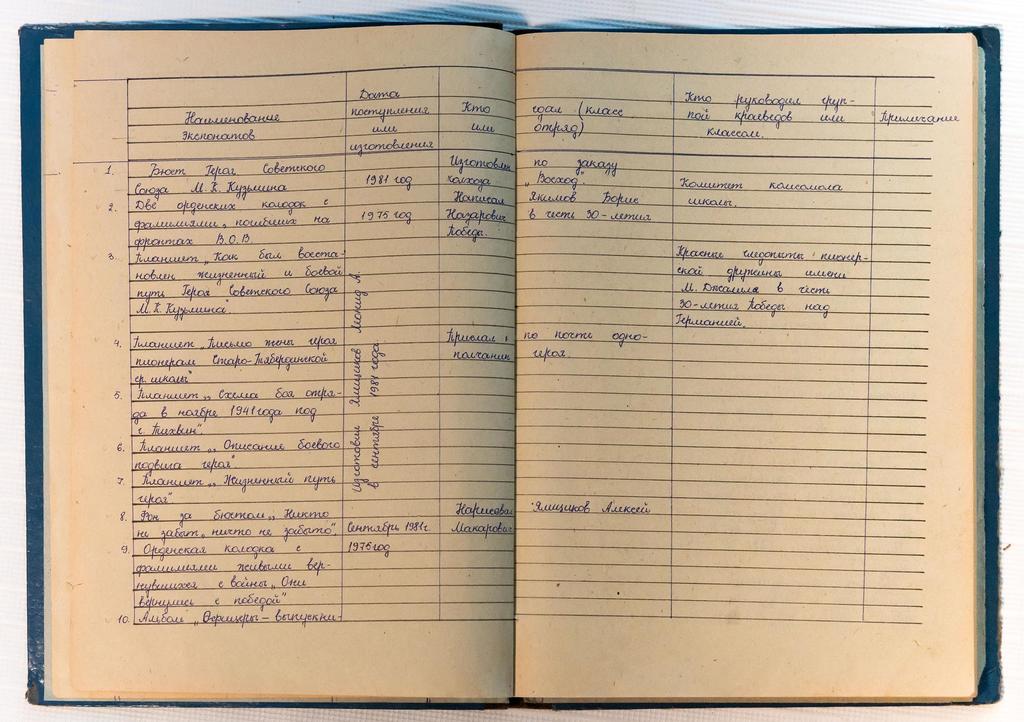 Наименование экспонатов
Дата поступления или изготовления
Кто или сдал (класс отряд)
Кто руководил группой краеведов или классом.
Примечание
1. Бюст Героя Советского
Союза М. К. Кузьмина
1981 год
Изготовлен по заказу
колхоза „Восход"
Комитет комсомола
школы.
2. Две орденских колодок с
фамилиями, погибших на
фронтах В.О.В
1975 год
Написал Якимов Борис
Назарович в честь 30-летия
Победы.
3. Планшет „Как был восста-
новлен жизненный и боевой
путь Героя Советского Союза
М. К. Кузьмина".
Красные следопыты пионер-
ской дружины имени
М. Джалиля в честь
30-летия Победы над
Германией.
4. Планшет „Письмо жены героя
пионерам Старо-Тябердинской
ср. школы"
Прислал по почте одно-
полчанин героя.
5. Планшет „Схема боя отря-
да в ноябре 1941 года под
г. Тихвин".
6. Планшет „Описание боевого
подвига героя".
7. Планшет „Жизненный путь
героя"
Изготовил Ямщиков Леонид А.
в сентябре 1981 года
8. Фон за бюстом „Никто
не забыт, ничто не забыто".
Сентябрь 1981г.
Нарисовал Ямщиков Алексей
Макарович
9. Орденская колодка с
фамилиями живыми вер-
нувшихся с войны „Они
вернулись с победой"
1975 год
10. Альбом „Офицеры – выпускни-